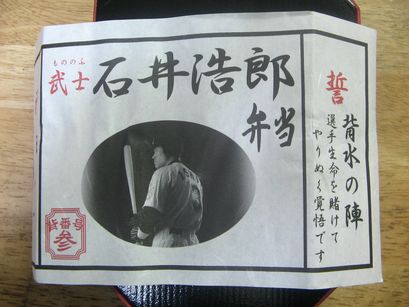 もののふ
武士 石井浩郎
弁当
背番号
参
誓 背水の陣
選手生命を賭けて
やりぬく覚悟です